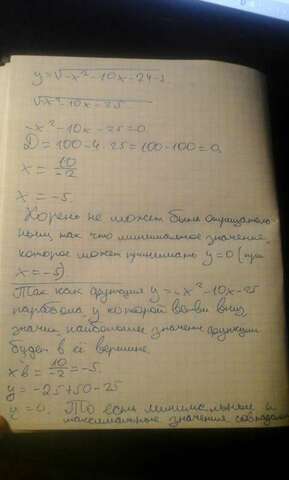 y=√-x²-10x-24-1
√-x²-10x-25
-x²-10x-25=0
D=100-4·25=100-100=0
x=10/-2
x=-5.
Корень не может быть отрицатель
ным, так что минимальное значение,
которое может принимать y=0 (при
x=-5)
Так как функция y=-x²-10x-25
парабола у которой ветви вниз,
значит наибольшее значение функции
будет в её вершине.
xв=10/-2=-5.
y=-25+50-25
y=0. То есть минимальные и
максимальные значения совпадают